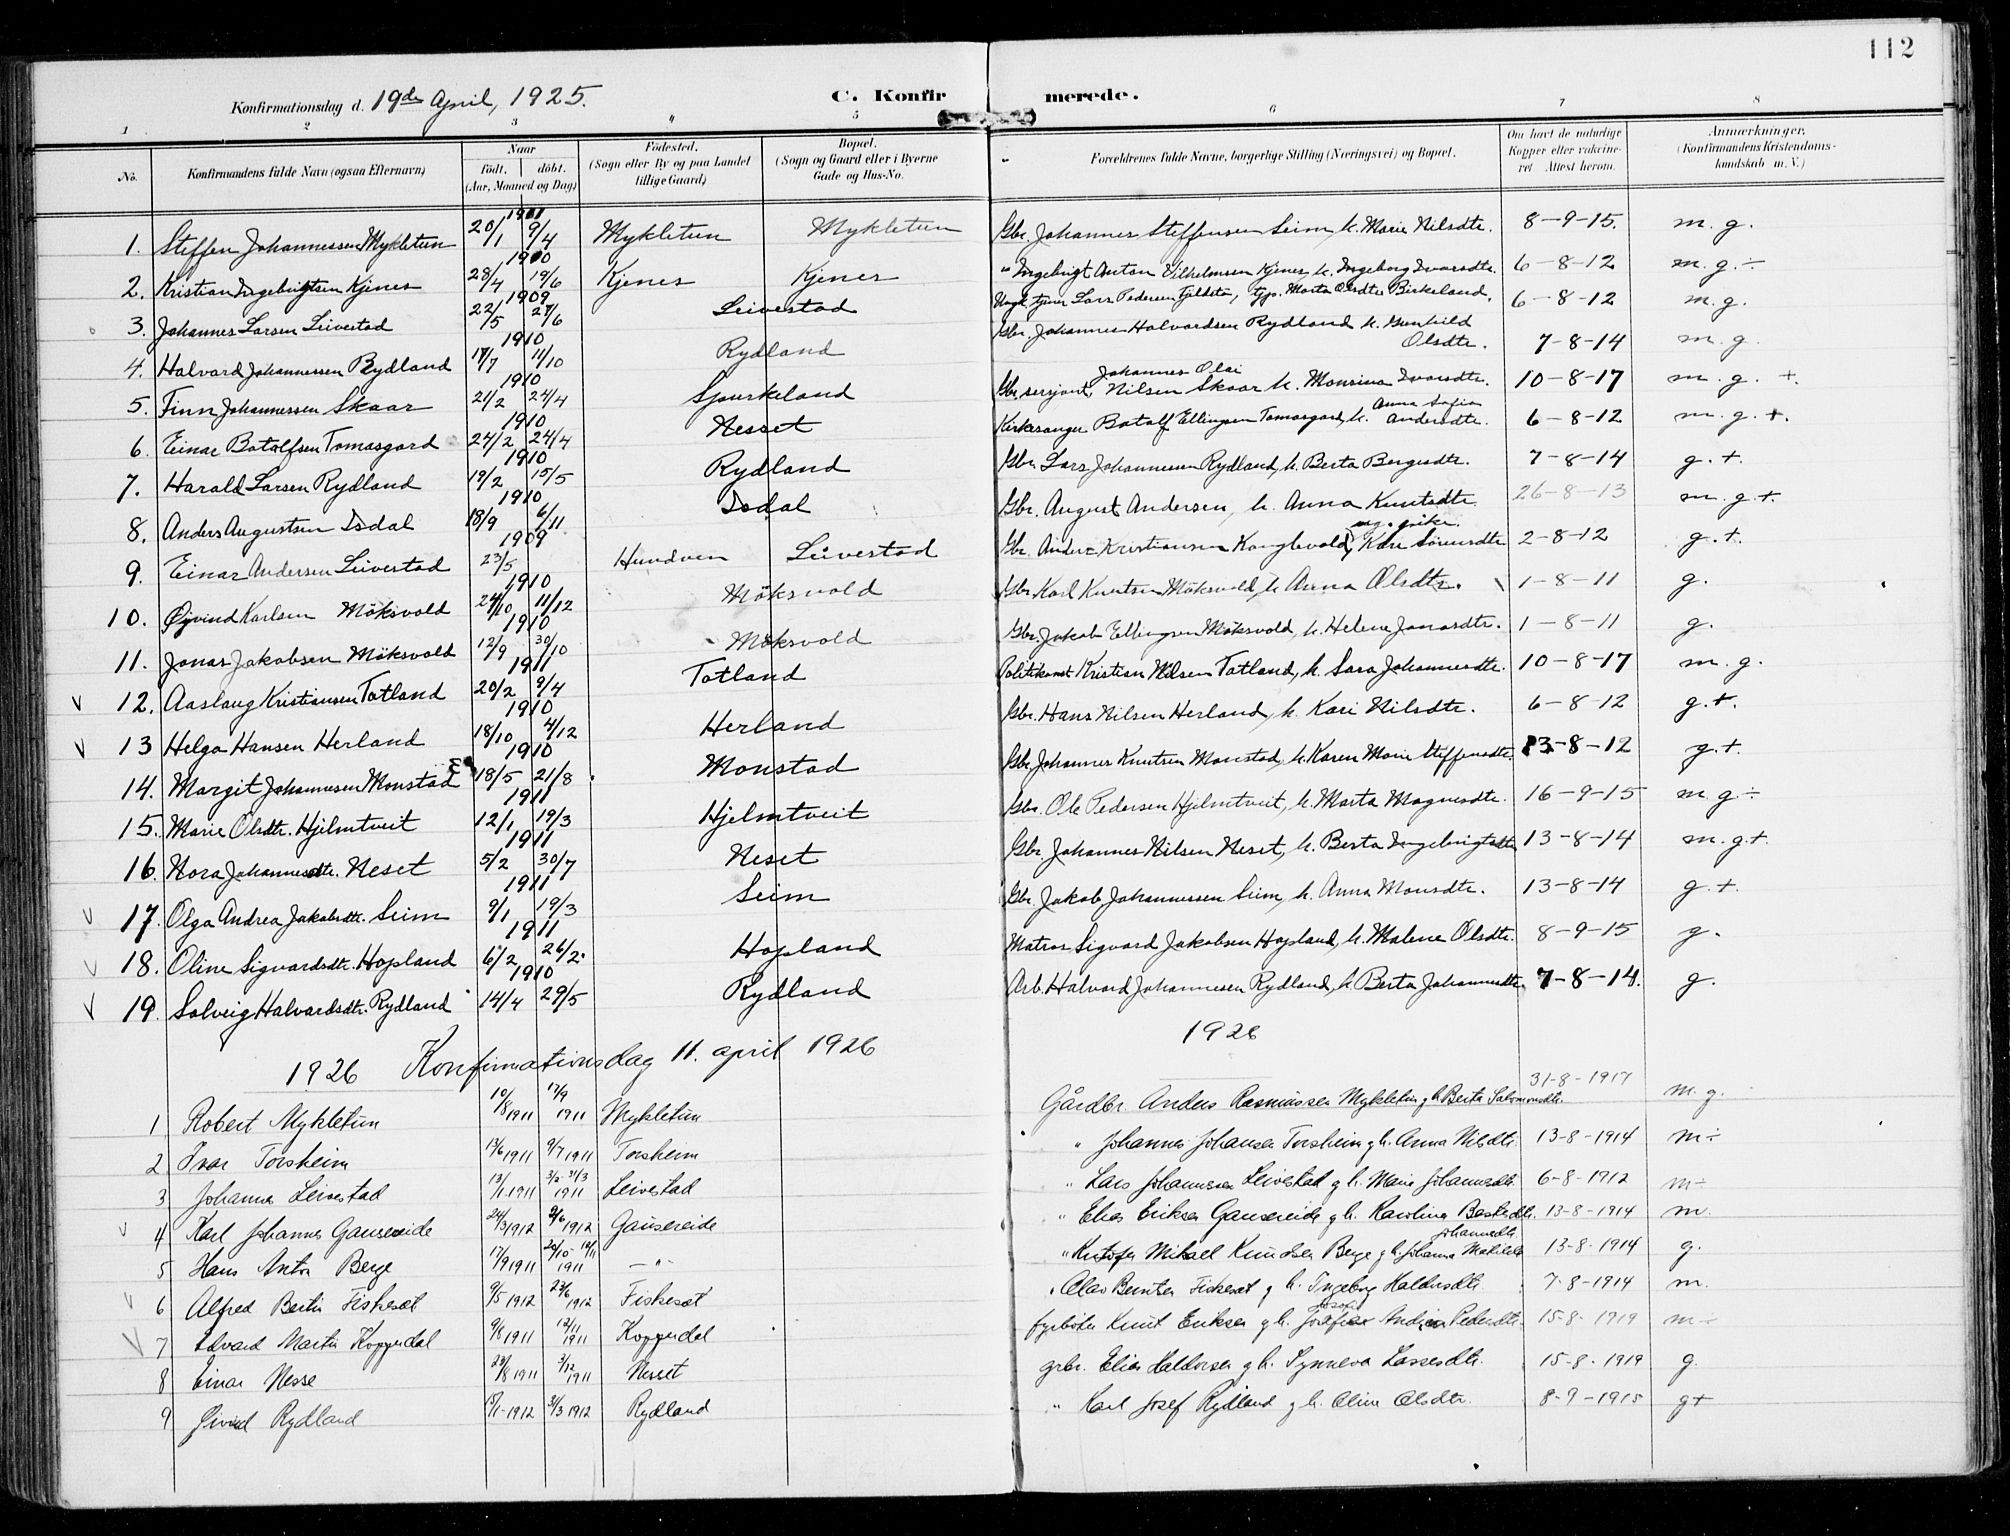 112
Konfirmationsdag d. 19de April, 1925. C. Konfirmerede.
1 2 3 " 5 6 7 8
No. Konfirmandens fulde Navn (ogsaa Efternavn) Naar Födt. döbt. (Aar, Maaned og Dag) Födested. (Sogn eller By og paa Landet tillige Gaard) Bopæl. (Sogn og Gaard eller i Byerne Gade og Hus-No. Forældrenes fulde Navne, borgerlige Stilling (Næringsvei) og Bopæl. Om havt de naturlige Kopper eller vakcineret Attest herom. Anmærkninger. (Konfirmandens Kristendomskundskab m. V.)
1. Steffen Johannessen Mykletun 1911 20/1 9/4 Mykletun Mykletun Gbr. Johannes Steffensen Seim, h. Marie Nilsdtr. 8-9-15. m. g.
2. Kristian Ingebrigtsen Kjenes 1910 28/4 19/6 Kjenes Kjenes " Ingebrigt Anton Vilhelmsen Kjenes, h. Ingeborg Ivarsdtr. 6-8-12 m. g. ÷
3. Johannes Larsen Leivestad 1909 22/5 27/6 Leivestad Ungk. tjener Lars Pedersen Fjeldsta, tjp. Marta Olsdtr Birkeland. 6-8-12 m. g.
4. Halvard Johannessen Rydland 1910 17/7 11/10 Rydland Gbr. Johannes Halvardsen Rydland h. Gunhild Olsdtr. 7-8-14 m. g.
5. Finn Johannessen Skaar 1910 21/2 24/4 Spurkeland Gbr, serjant, Johannes Olai Nilsen Skaar h. Monsina Ivarsdtr. 10-8-17 m. g. +.
6. Einar Botolfsen Tomasgard 1910 24/2 24/4 Nesset Kirkesanger Botolf Ellingsen Tomasgard, h. Anna Sofia Andersdtr. 6-8-12 m. g. +.
7. Harald Larsen Rydland 1910 19/2 15/5 Rydland Gbr. Lars Johannessen Rydland, h. Berta Bergesdtr. 7-8-14 g. +.
8. Anders Augustsen Isdal 1910 18/9 6/11 Isdal Gbr. August Andersen, h. Anna Knutsdtr. 26-8-13 m. g +.
9. Einar Andersen Leivestad 1909 23/5 Hundven Leivestad Gbr. Anders Kristiansen Konglevold, ug. pike. Kari Sörensdtr 2-8-12 g. +.
10. Øyvind Karlsen Möksvold 1910 24/10 11/12 Möksvold Gbr. Karl Knutsen Möksvold, h. Anna Olsdtr. 1-8-11 g.
11. Jonas Jakobsen Möksvold 1910 12/9 30/10 Möksvold Gbr. Jakob Ellingsen Möksvold, h. Helene Jonasdtr. 1-8-11 g.
12. Aaslaug Kristiansen Totland 1911 20/2 9/4 Totland Politikonst. Kristian Nilsen Totland, h. Sara Johannesdtr. 10-8-17 m. g.
13 Helga Hansen Herland 1910 18/10 4/12 Herland Gbr. Hans Nilsen Herland, h. Kari Nilsdtr. 6-8-12 g. +.
14. Margit Johannesen Monstad 1910 18/5 21/8 Monstad Gbr. Johannes Knutsen Monstad, h. Karen Marie Steffensdtr. 13-8-12 g. +.
15. Marie Olsdtr. Hjelmtveit 1911 12/1 19/3 Hjelmtveit Gbr. Ole Pedersen Hjelmtveit, h. Marta Magnesdtr. 16-9-15 m. g ÷
16. Nora Johannesdtr. Neset 1911 5/2 30/7 Neset Gbr. Johannes Nilsen Neset, h. Berta Ingebrigtsdtr 13-8-14 m. g +.
17. Olga Andrea Jakobsdtr. Seim 1911 9/1 19/3 Seim Gbr. Jakob Johannessen Seim, h. Anna Monsdtr. 13-8-14 g. +.
18. Oline Sigvardsdtr. Hopland 1911 6/2 26/2. Hopland Matros Sigvard Jakobsen Hopland, h. Malene Olsdtr. 8-9-15 g.
19. Solveig Halvardsdtr. Rydland 1910 14/4 29/5 Rydland Arb. Halvard Johannesen Rydland, h. Berta Johannesdtr. 7-8-14. g.
1926 Konfirmationsdag 11. april 1926 1926
1 Robert Mykletun 10/8 1911 17/9 1911 Mykletun Gårdbr. Anders Rasmussen Mykletun g h. Berta Salomonsdtr. 31-8-1917 m. g.
2 Ivar Torsheim 13/6 1911 9/7 1911 Torsheim " Johannes Johansen Torsheim g h. Anna Nilsdtr. 13-8-1914 m ÷
3 Johanna Leivestad 13/1 1911 3/2 31/3 1911 Leivestad " Lars Johannesen Leivestad g h. Marie Johannesdtr. 6-8-1912 m ÷
4 Karl Johannes Gausereide 24/3 1912 9/6 1912 Gausereide " Elias Eriksen Gausereide g h. Karolina 13-8-1914 m.
5 Hans Anton Berge 17/9 1911 29/10 12/11 1911 - " - " Kristofer Mikael Knudsen Berge g h. Johanna Matilde Johannesdtr 13-8-1914 g.
6 Alfred Bertin Fiskeset 9/5 1912 23/6 1912 Fiskeset " Olav Berntsen Fiskeset g h. Ingeborg Haldorsdtr 7-8-1914 m.
7 Edvard Martin Kopperdal 9/8 1911 12/11 1911 Kopperdal fyrbøter Knut Eriksen g h. Andrea Pedersdtr. 15-8-1919 m ÷
8 Einar Nesse 23/8 1911 3/12 1911 Nesset grbr. Elias Haldorsen g h. Synneva Lassesdtr. 15-8-1919 g.
9 Øivind Rydland 15/1 1912 31/3 1912 Rydland " Karl Josef Rydland g h. Oline Olsdtr. 8-9-1915 g +